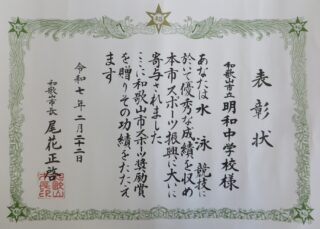 表彰状
和歌山市立 明和中学校様
あなたは水泳競技に
於いて優秀な成績を収め
本市スポーツ振興に大いに
寄与されました
ここに和歌山市スポーツ奨励賞
を贈りその功績をたたえ
ます
令和七年二月二十二日
和歌山市長 尾花正啓